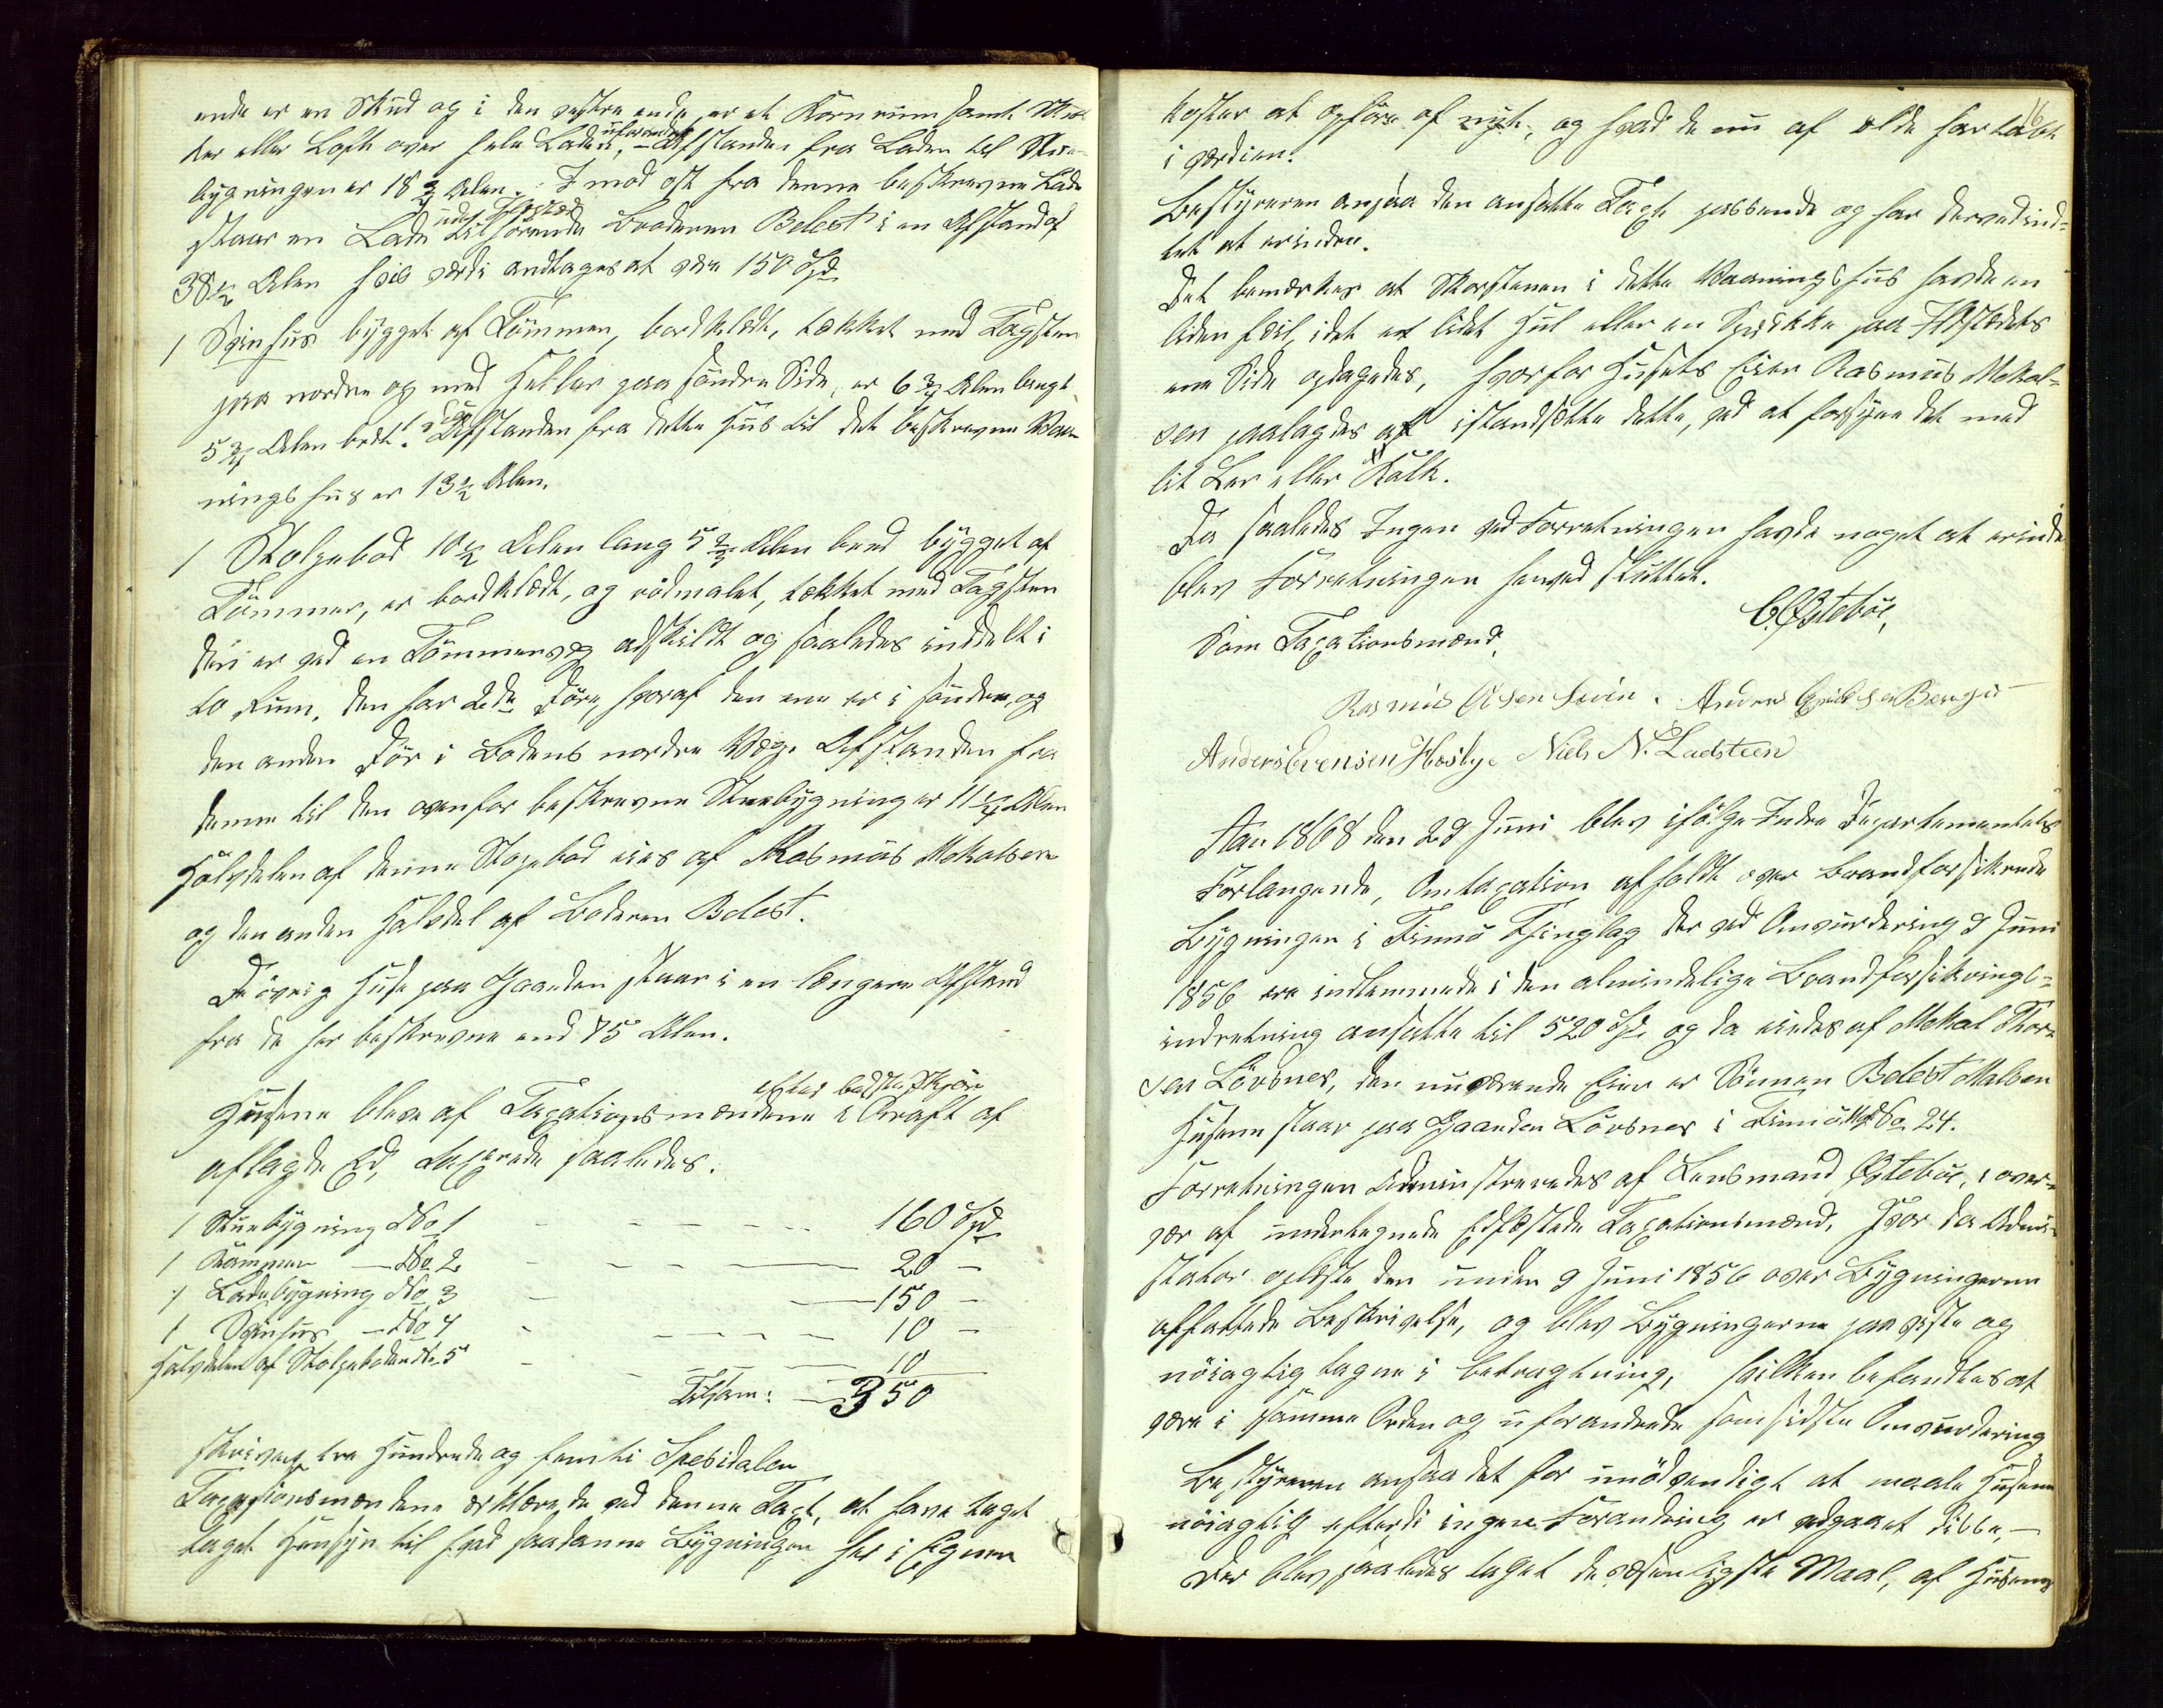 ende er en Skud og i den vestre ende er et Kornrum samt Stæn-
ger eller Loft over hele Laden, uforandret – Afstanden fra Laden til Stue-
bygningen er 18 3/4 Alen. I mod ost fra denne beskrevne Lade
staar en Lade uden Ildsted tilhørende Broderen Belest i en Afstand af
38 1/2 Alen hvis værdi andtages at være 150 Spd
1 Svinhus bygget af Tømmer, bordklædt, tækket med Tagsten
paa nordre og med Heller paa søndre Side, er 6 3/4 Alen langt,
5 3/4 Alen bredt. Afstanden fra dette Huus til det beskrevne Vaa-
ningshus er 13 1/2 Alen.
1 Stolpebod 10 1/2 Alen lang 5 3/4 Alen bred bygget af
Tømmer, er bordklædt, og rødmalet, tækket med Tagsten
den er ved en Tømmervæg adskildt og saaledes inddelt i
to Rum, den har 2de Døre, hvoraf den ene er i søndre, og
den anden Dør i Bodens nordre Væg. Afstanden fra
denne til den ovenfor beskrevne Stuebygning er 11 1/4 Alen
Halvdelen af denne Stopebod eies af Rasmus Mekalsen
og den anden Halvdel af Broderen Belest.
De øvrig Huse paa Gaarden staar i en længere Afstand
fra de her beskrevne end 75 Alen.
Husene bleve af Taxationsmændene efter bedste Skjøn i Kraft af
aflagde Ed, taxerede saaledes.
1 Stuebygning No 1 – – – – 160 Spd
1 Kammer – No 2 – – – – 20 –
1 Ladebygning No 3 – – 150 –
1 Svinhus – No 4 – – – – 10 –
Halvdelen af Stolpeboden No 5 – – – 10
Tilsam: – 350
skriver tre Hundrede og femti Spesidaler
Taxationsmændene erklærede ved denne Taxt, at have taget
taget Hensyn til hvad saadanne Bygninger her i Egnen
16
koster at opføre af nyt, og hvad de nu af ælde har tabt
i værdien.
Bestyreren ansaa den ansatte Taxt passende og har derved ind-
tet at erindre.
Det bemærkes at Skorstenen i dette Vaaningshus havde en
liden feil, idet et lidet Hul eller en Sprække paa Ildstedets
ene Side opdagedes, hvorfor Husets Eier Rasmus Mekal-
sen paalagdes at istandsætte dette, ved at forsyne det med
lit Ler eller Kalk.
Da saaledes Ingen ved Forretningen havde noget at erindre
blev Forretningen herved sluttet.
C. Østebøe,
Som Taxationsmænd,
Rasmus Olsen . Anders
Anders Evensen Hesby. Niels N. Ladsteen
Aar 1868 den 29 Juni blev ifølge Indre Departementets
Forlangende, Omtaxation afholdt over brandforsikrede
Bygninger i Finnø Thinglag der ved Omvurdering 9 Juni
1856 ere indlemmede i den almindelige Brandforsikrings-
indretning ansatte til 520 Spd, og da eiedes af Mekal Thor-
sen Lövsnes, den nuværende Eier er Sønnen Belest Malsen
Husene staar paa Gaarden Lövsnes i Finnö Mat No 24.
Forretningen Administreredes af Lensmand Østebøe, i over-
vær af undertegnede Edfæstede Taxationsmænd. Hvor da Admi-
strator oplæste den under 9 Juni 1856 over Bygningerne
affattede Beskrivelse, og blev Bygningerne paaviste og
nøiagtig tagne i betragtning, hvilken befandtes at
være i samme Orden og uforandrede som sidste Omvurdering
Bestyreren ansaa det for unødvendigt at maale Husene
nøiagtig efterdi ingen Forandring er vedgaaet disse, –
Der blev saaledes taget de væsentligste Maal, af Husene